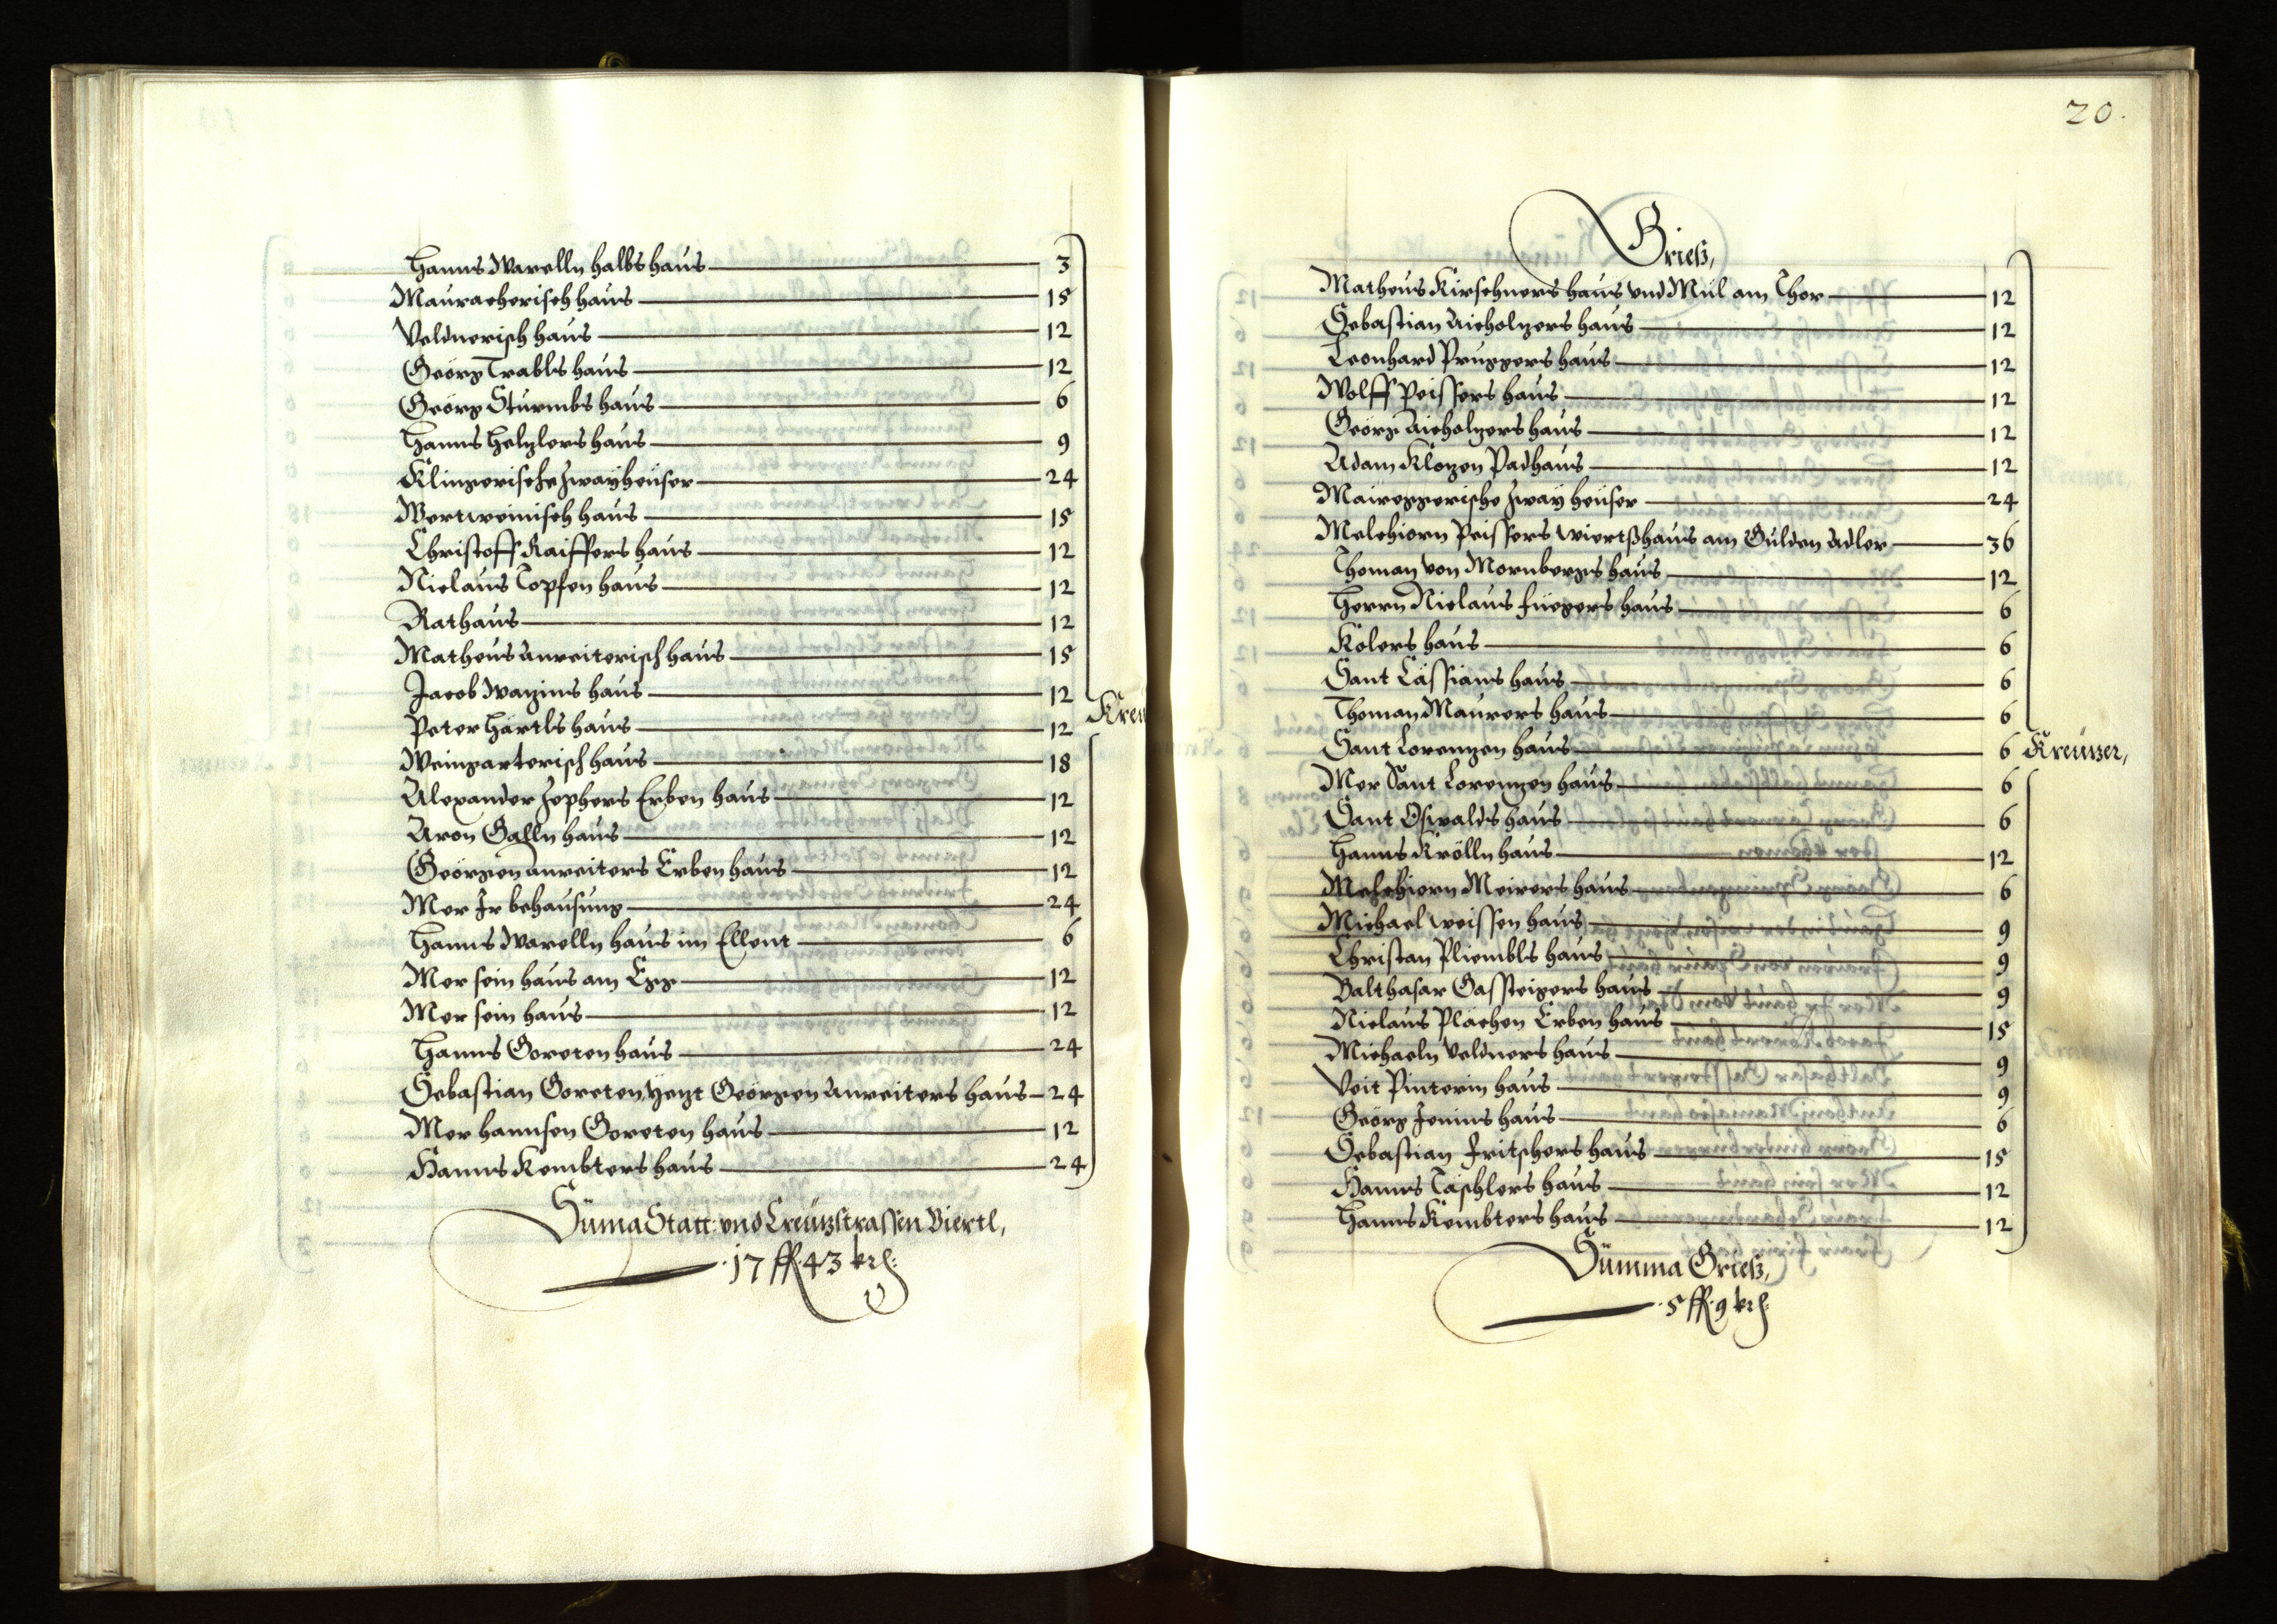 Hanns Warelln halbs haus 3
Mauracherisch haus 15
Veldnerisch haus 12
Geörg Trabls haus 12
Geörg Sturmbs haus 6
Hanns Helzlers haus 9
Klingerische zway heuser 24
Wertweinisch haus 15
Christoff Kaiffers haus 12
Niclaus Topfen haus 12
Rathaus 12
Matheus Anreiterisch haus 15
Jacob Wagins haus 12
Peter Härtls haus 12
Weingarterisch haus 18
Alexander Zophers Erben haus 12
Aron Galln haus 12
Geörgen Anreiters Erben haus 12
Mer Ir behausung 24
Hanns Warelln haus im Ellent 6
Mer sein haus am Egg 12
Mer sein haus 12
Hanns Goreten haus 24
Sebastian Goreten yezt Geörgen Anreiters haus 24
Mer hannsen Goreten haus 12
Hanns Kembters haus 24
Kreu
Suma Statt: vnd Creützstrassen Viertl,
17 fl. 43 krl:
20.
Grieß,
Matheus Kirschners haus vnd Mül am Thor 12
Sebastian Aicholzers haus 12
Leonhard Pruggers haus 12
Wolff Peissers haus 12
Geörg Aicholzers haus 12
Adam Klozen Padhaus 12
Maireggerische zway heuser 24
Melchiorn Peissers wiertßhaus am Gulden Adler 36
Thoman von Mornbergs haus 12
Herrn Niclaus Füegers haus 6
Kolers haus 6
Sant Cässians haus 6
Thoman Maurers haus 6
Sant Lorenzen haus 6 Kreüzer,
Mer Sant Lorenzen haus 6
Sant Oswalds haus 6
Hanns Krölln haus 12
Melchiorn Meirers haus 6
Michael Weissen haus 9
Christan Pliembls haus 9
Balthasar Gassteigers haus 9
Niclaus Plachen Erben haus 15
Michaeln Veldners haus 9
Veit Pinterin haus 9
Geörg Jenins haus 6
Sebastian Fritschers haus 15
Hanns Täschlers haus 12
Hanns Kembters haus 12
Summa Grieß,
5 fl. 9 krl: